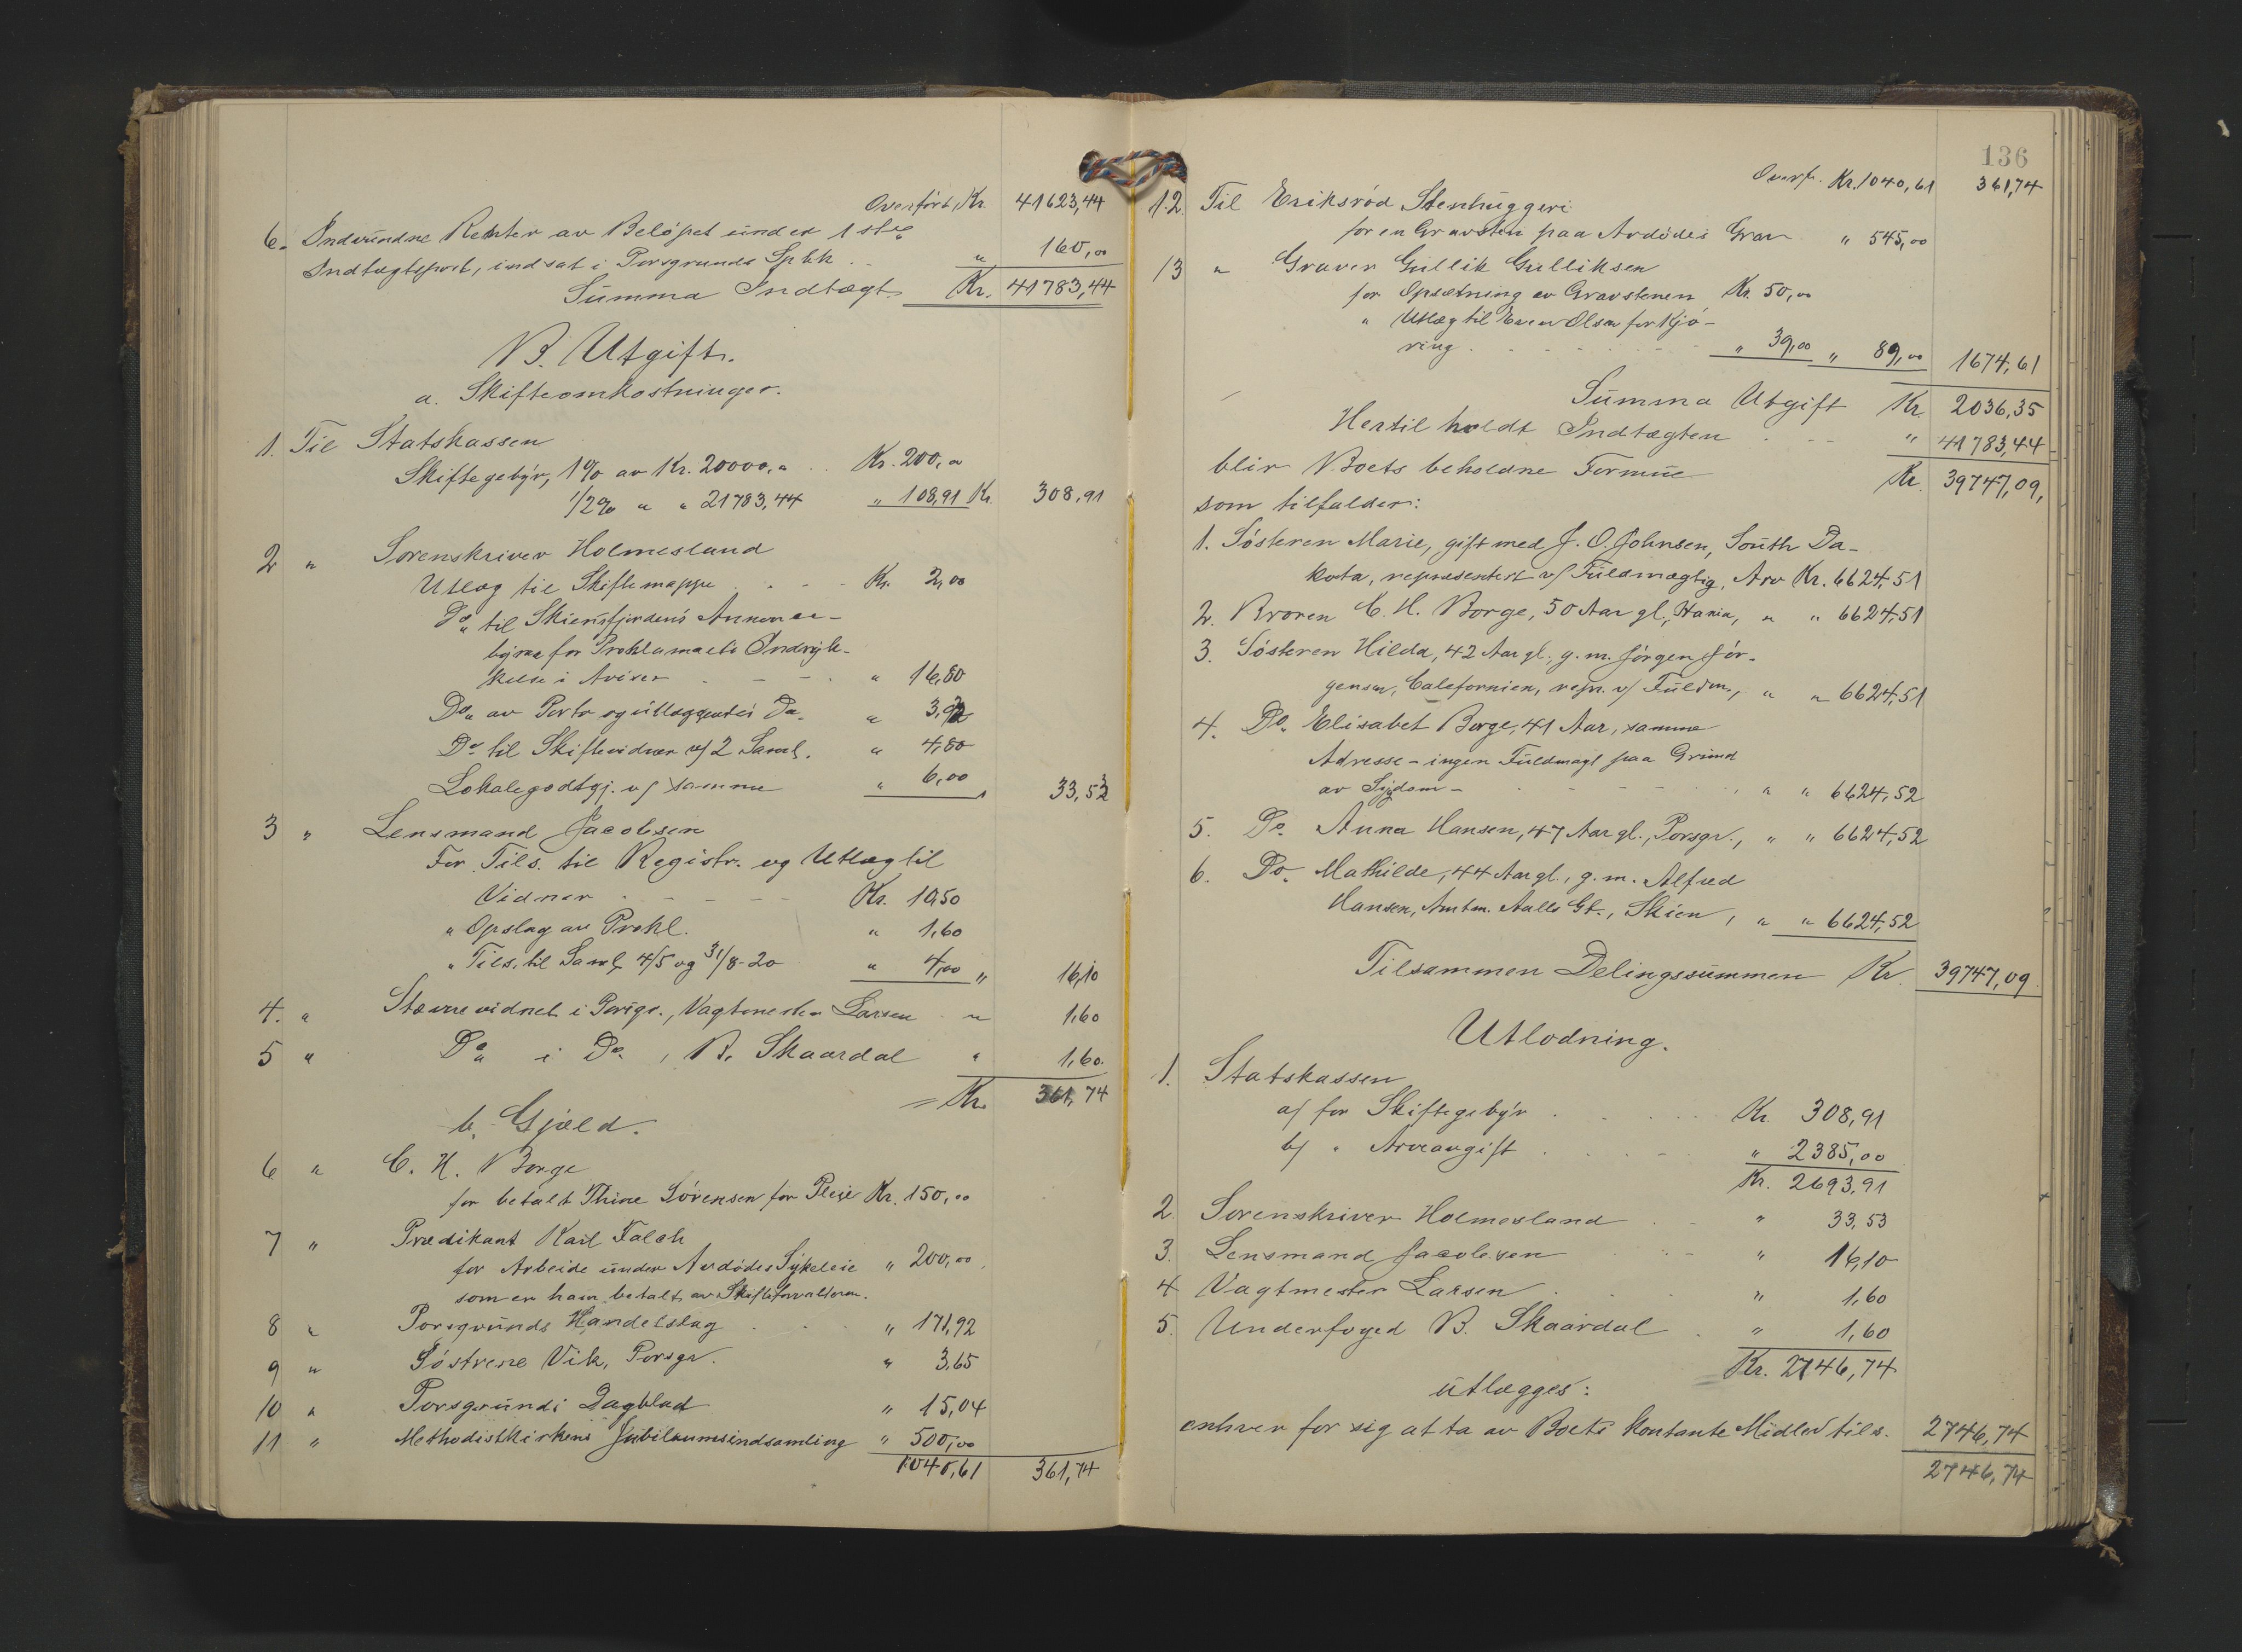 Overført, Kr. 41623,44
6. Indvundne Renter av Beløpet under 1ste
Indtægtspost, indsat i Porsgrunds Spbk. " 160,00
Summa Indtægt Kr. 41783,44
B. Utgift.
a. Skifteomkostninger.
1. Til Statskassen
Skiftegebyr, 1% av Kr. 20000," Kr. 200,"
1/2% " " 21783,44 " 108,91 Kr. 308,91
2 " Sorenskriver Holmesland
Utlæg til Skiftemappe Kr. 2,00
Do. til Skiensfjordens Annonce-
byraa for Proklamaets Indryk-
kelse i Aviser " 16,80
Do. av Porto og utlæggender Do. " 3,93
Do til Skiftevidner v/ 2 Saml. " 4,80
Lokalegodtgj. v/ samme " 6,00 33,53
3 " Lensmand Jacobsen
For Tils. til Registr. og Utlæg til
Vidner Kr. 10,50
" Opslag av Prokl. " 1,60
" Tils. til Saml. 4/5 og 31/8-20 " 4,00 " 16,10
4. " Stævnevidnet i Porsgr., Vagtmester Larsen " 1,60
5 " Do. i Do., B. Skaardal " 1,60.
= Kr. 361,74
b. Gjæld.
6 " C. H. Borge
for betalt Thine Sørensen for Pleie Kr. 150,00
7 " Prædikant Karl Falch
for Arbeide under Avdødes Sykeleie " 200,00
som er ham betalt av Skifteforvalteren.
8 " Porsgrunds Handelslag " 171,92
9 " Søstrene Vik, Porsgr. " 3,65
10 " Porsgrunds Dagblad " 15,04
11 " Methodistkirkens Jubilæumsindsamling " 500,00
1040,61 361,74
136
Overf. Kr. 1040,61 361,74
12. Til Eriksrød Stenhuggeri
for en Gravsten paa Avdødes Grav " 545,00
13 " Graver Gullik Gulliksen
for Opsætning av Gravstenen Kr. 50,00
" Utlæg til Even Olsen for Kjø-
ring " 39,00 " 89,00 1674,61
Summa Utgift Kr. 2036,35
Hertil holdt Indtægten " 41783,44
blir Boets beholdne Formue Kr. 39747,09,
som tilfalder:
1. Søsteren Marie, gift med J. O. Johnsen, South Da-
kota, representert v/ Fuldmægtig, Arv Kr. 6624,51
2. Broren C. H. Borge, 50 Aar gl., " " 6624,51
3. Søsteren Hilda, 42 Aar gl., g. m. Jørgen Jør-
gensen, Californien, repr. v/ Fuldm., " " 6624,51
4. Do. Elisabet Borge, 41 Aar, samme
Adresse - ingen Fuldmagt paa Grund
av Sygdom - , " " 6624,52
5. Do. Anna Hansen, 47 Aar gl., Porsgr., " " 6624,52
6. Do. Mathilde, 44 Aar gl., g. m. Alfred
Hansen, Amtm. Aalls Gt., Skien, " " 6624,52
Tilsammen Delingssummen Kr. 39747,09.
Utlodning.
1. Statskassen
a/ for Skiftegebyr Kr. 308,91
b/ " Arveavgift " 2385,00
Kr. 2693,91
2. Sorenskriver Holmesland " 33,53
3. Lensmand Jacobsen " 16,10
4 Vagtmester Larsen " 1,60
5. Underfoged B. Skaardal " 1,60
Kr. 2746,74
utlægges:
enhver for sig at ta av Boets kontante Midler tils. 2746,74
2746,74